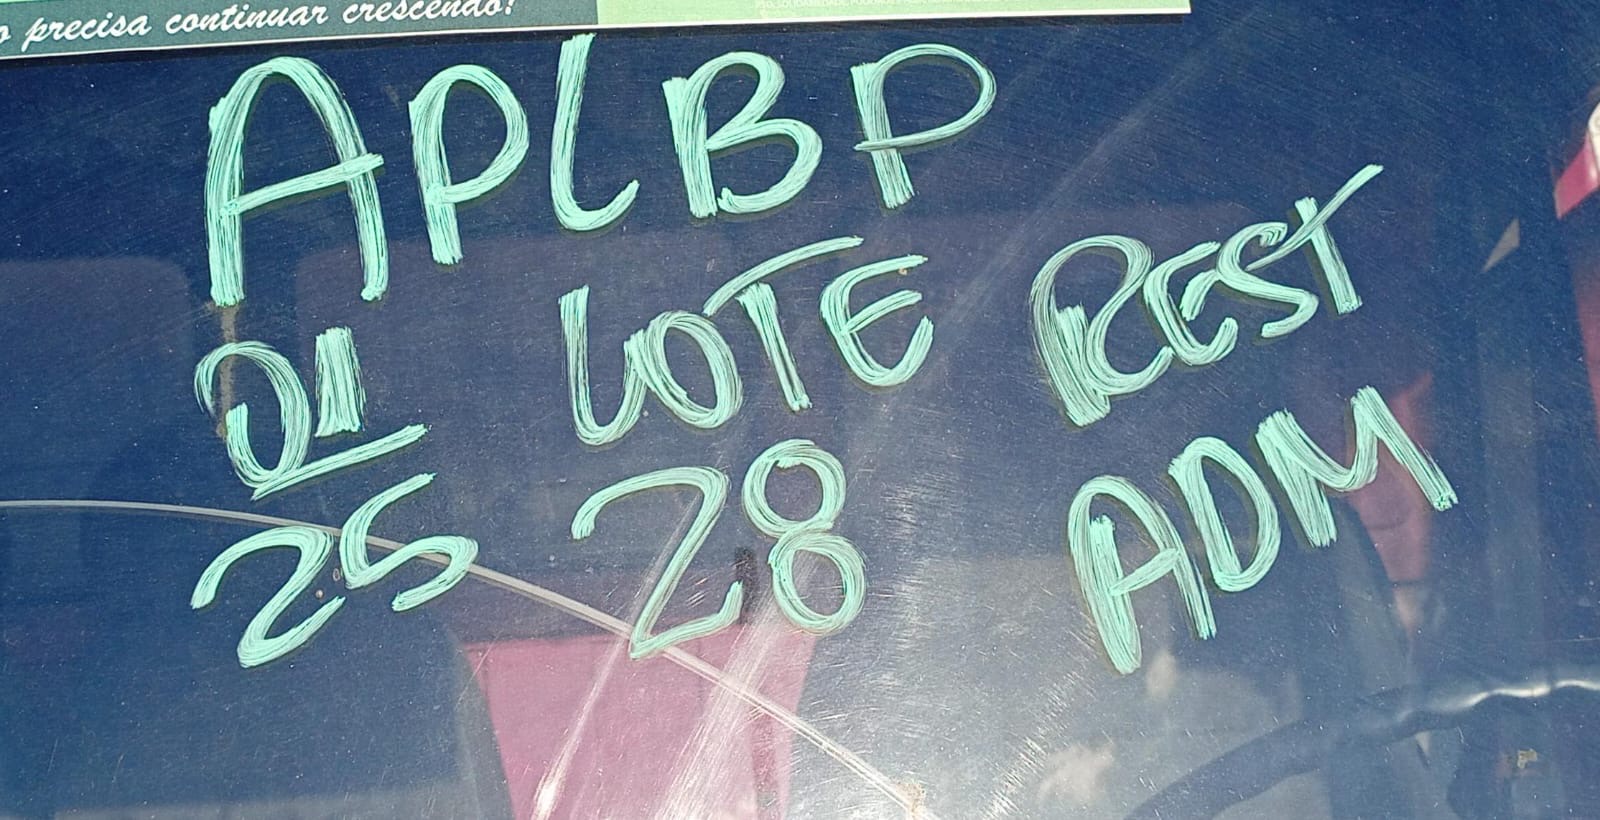 o precisa continuar crescendo!
APLBP
01 LOTE REST
25 28 ADM